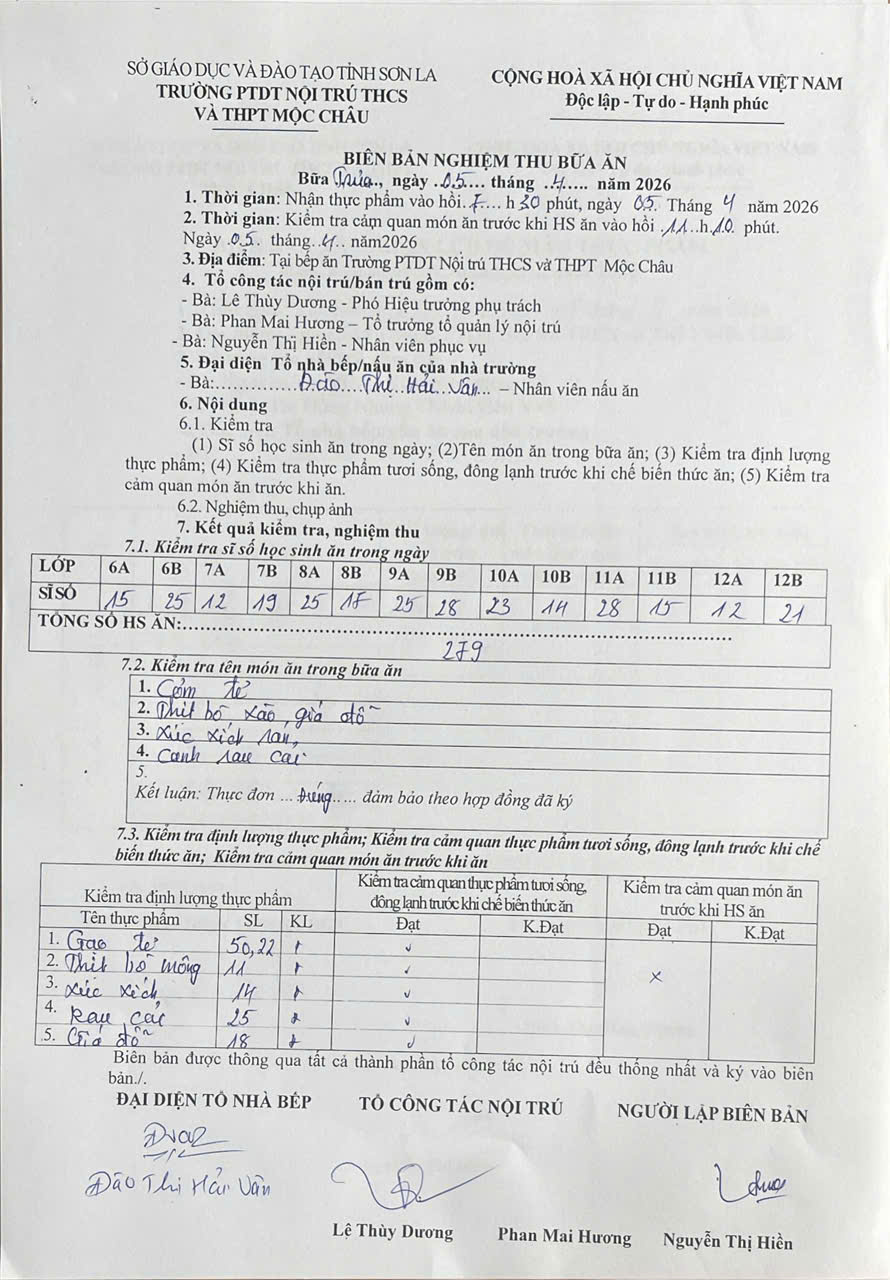 SỞ GIÁO DỤC VÀ ĐÀO TẠO TỈNH SƠN LA
TRƯỜNG PTDT NỘI TRÚ THCS
VÀ THPT MỘC CHÂU
CỘNG HOÀ XÃ HỘI CHỦ NGHĨA VIỆT NAM
Độc lập - Tự do - Hạnh phúc
BIÊN BẢN NGHIỆM THU BỮA ĂN
Bữa Trưa.., ngày ..05.... tháng ..4..... năm 2026
1. Thời gian: Nhận thực phẩm vào hồi..7.... h 30 phút, ngày 05. Tháng 4 năm 2026
2. Thời gian: Kiểm tra cảm quan món ăn trước khi HS ăn vào hồi .11..h.10. phút.
Ngày .05. tháng..4.. năm2026
3. Địa điểm: Tại bếp ăn Trường PTDT Nội trú THCS và THPT Mộc Châu
4. Tổ công tác nội trú/bán trú gồm có:
- Bà: Lê Thùy Dương - Phó Hiệu trưởng phụ trách
- Bà: Phan Mai Hương – Tổ trưởng tổ quản lý nội trú
- Bà: Nguyễn Thị Hiền - Nhân viên phục vụ
5. Đại diện Tổ nhà bếp/nấu ăn của nhà trường
- Bà:...............Đào....Thị..Hải..Vân... – Nhân viên nấu ăn
6. Nội dung
6.1. Kiểm tra
(1) Sĩ số học sinh ăn trong ngày; (2)Tên món ăn trong bữa ăn; (3) Kiểm tra định lượng
thực phẩm; (4) Kiểm tra thực phẩm tươi sống, đông lạnh trước khi chế biến thức ăn; (5) Kiểm tra
cảm quan món ăn trước khi ăn.
6.2. Nghiệm thu, chụp ảnh
7. Kết quả kiểm tra, nghiệm thu
7.1. Kiểm tra sĩ số học sinh ăn trong ngày
LỚP 6A 6B 7A 7B 8A 8B 9A 9B 10A 10B 11A 11B 12A 12B
SĨ SỐ 15 25 12 19 25 17 25 28 23 14 28 15 12 21
TỔNG SỐ HS ĂN:.....................................................................
279
7.2. Kiểm tra tên món ăn trong bữa ăn
1. Cơm tẻ
2. Thịt bò xào, giá đỗ
3. Xúc xích ran,
4. Canh rau cải
5.
Kết luận: Thực đơn ... Đúng..... đảm bảo theo hợp đồng đã ký
7.3. Kiểm tra định lượng thực phẩm; Kiểm tra cảm quan thực phẩm tươi sống, đông lạnh trước khi chế
biến thức ăn; Kiểm tra cảm quan món ăn trước khi ăn
Kiểm tra định lượng thực phẩm
Kiểm tra cảm quan thực phẩm tươi sống,
đông lạnh trước khi chế biến thức ăn
Kiểm tra cảm quan món ăn
trước khi HS ăn
Tên thực phẩm SL KL Đạt K.Đạt Đạt K.Đạt
1. Gạo tẻ 50,22 ✓
2. Thịt bò mông 11 ✓ x
3. Xúc xích 14 ✓
4. Rau cải 25 ✓
5. Giá đỗ 18 ✓
Biên bản được thông qua tất cả thành phần tổ công tác nội trú đều thống nhất và ký vào biên
bản./.
ĐẠI DIỆN TỔ NHÀ BẾP TỔ CÔNG TÁC NỘI TRÚ NGƯỜI LẬP BIÊN BẢN
Đào Thị Hải Vân
Lê Thùy Dương Phan Mai Hương Nguyễn Thị Hiền